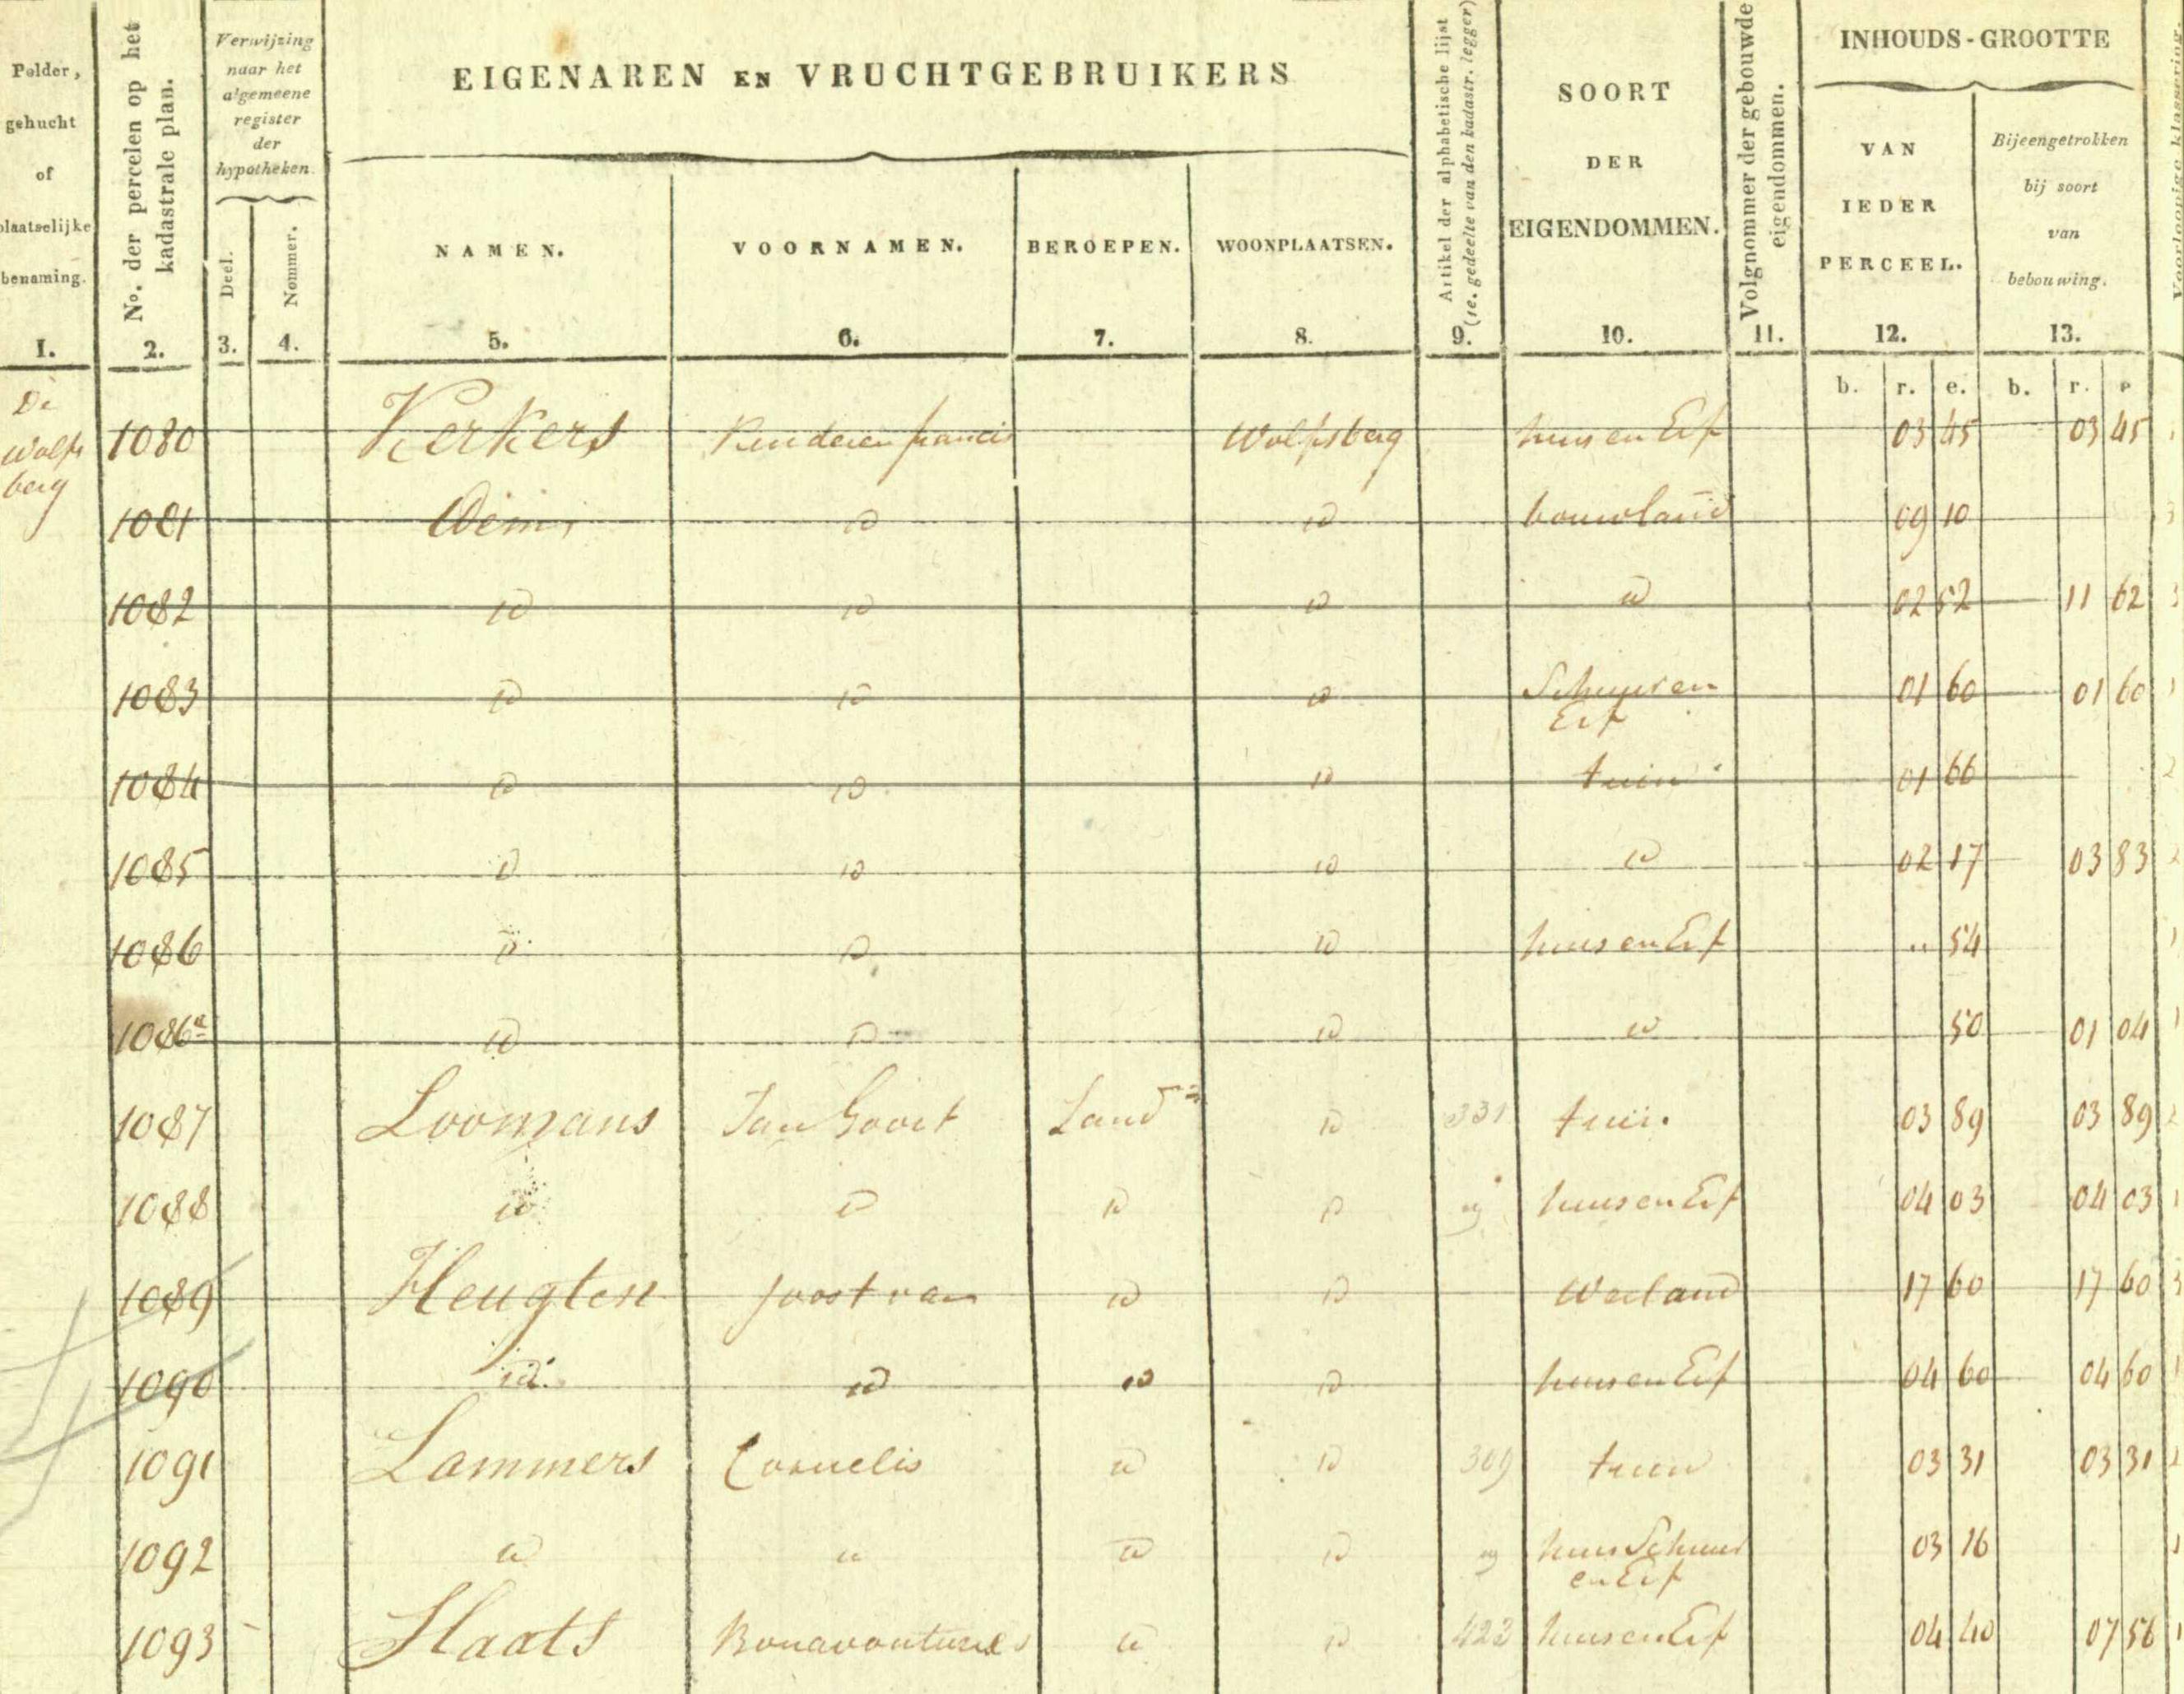 Polder, gehucht of plaatselijke benaming. 1.
No. der percelen op het kadastrale plan. 2.
Verwijzing naar het algemeene register der hypotheken.
Deel. 3.
Nommer. 4.
EIGENAREN EN VRUCHTGEBRUIKERS
NAMEN. 5.
VOORNAMEN. 6.
BEROEPEN. 7.
WOONPLAATSEN. 8.
Artikel der alphabetische lijst (1e. gedeelte van den kadastr. legger) 9.
SOORT DER EIGENDOMMEN. 10.
Volgnommer der gebouwde eigendommen. 11.
INHOUDS-GROOTTE
VAN IEDER PERCEEL. 12.
Bijeengetrokken bij soort van bebouwing. 13.
Voorloopige klassering.
b. r. e. b. r. e
De Wolfs berg
1080 Kerkers Kinderen francis Wolfsberg huis en Erf 03 45 03 45
1081 Idem id id bouwland 09 10
1082 id id id id 02 52 11 62
1083 id id id Schuur en Erf 01 60 01 60
1084 id id id tuin 01 66
1085 id id id id 02 17 03 83
1086 id id id huis en Erf " 54
1086a id id id id 50 01 04
1087 Loomans Jan Govert Land id 331 tuin 03 89 03 89
1088 id id id id huis en Erf 04 03 04 03
1089 Heugten Joost van id id Weiland 17 60 17 60
1090 id id id id huis en Erf 04 60 04 60
1091 Lammers Cornelis id id 309 tuin 03 31 03 31
1092 id id id id huis Schuur en Erf 03 16
1093 Slaats Bonaventura id id 422 huis en Erf 04 40 07 56